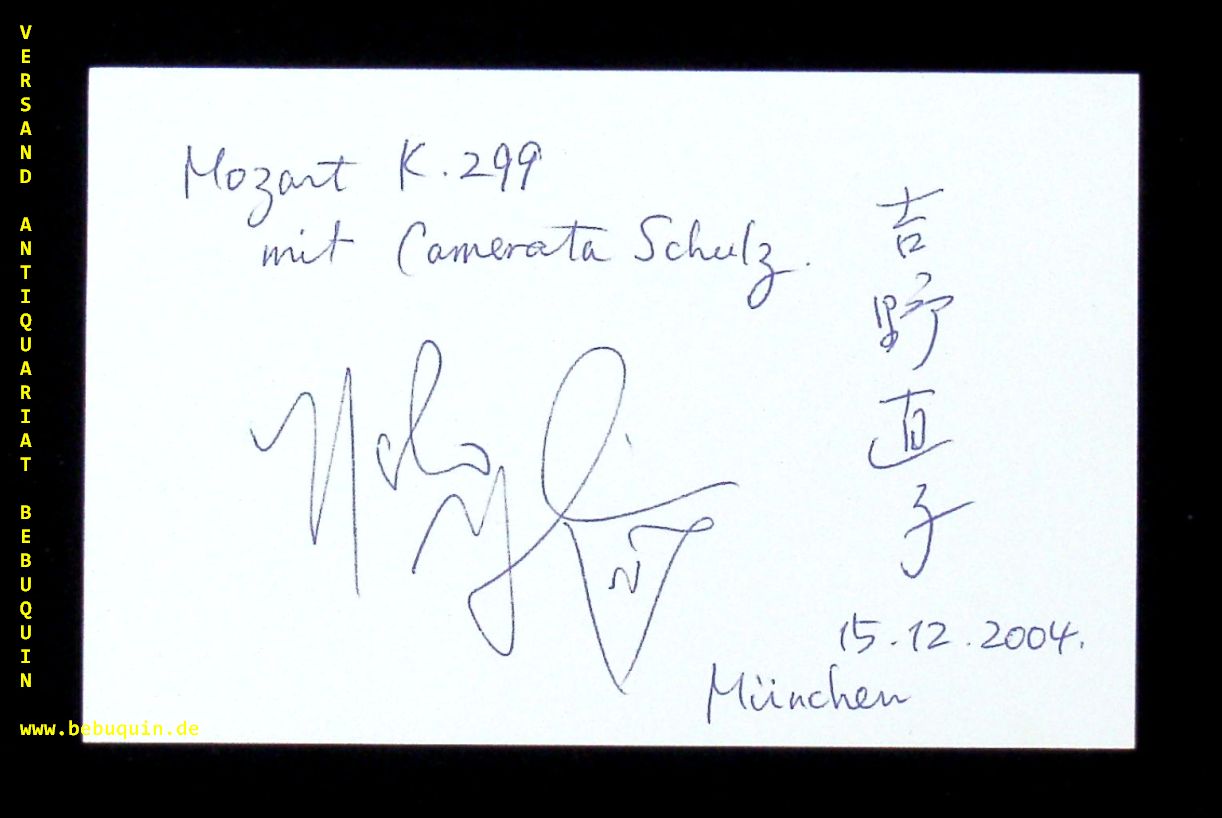 VERSAND ANTIQUARIAT BEBUQUIN
Mozart K.299
mit Camerata Schulz.
吉野直子
15.12.2004.
München
www.bebuquin.de